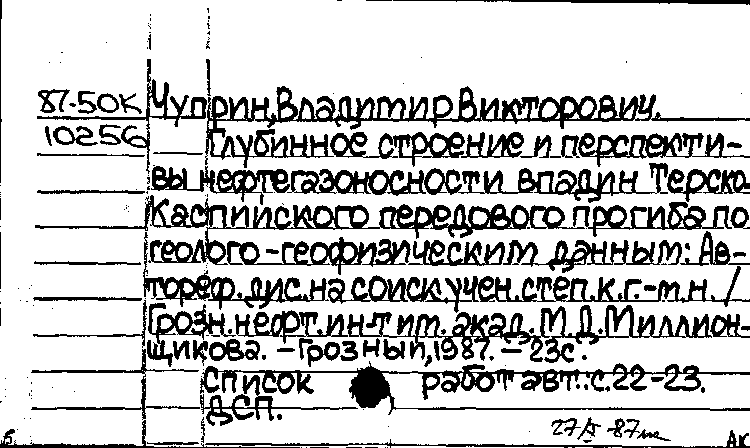 87-50К Чуприн, Владимир Викторович.
10256 Глубинное строение и перспекти-
вы нефтегазоносности впадин Терско-
Каспийского передового прогиба по
геолого-геофизическим данным: Ав-
тореф. дис. на соиск. учен. степ. к.г.-м.н. /
Грозн. нефт. ин-т им. акад. М.Д. Миллион-
щикова. - Грозный, 1987. - 23с.
Список работ авт.: с. 22-23.
ДСП.
В. Ак